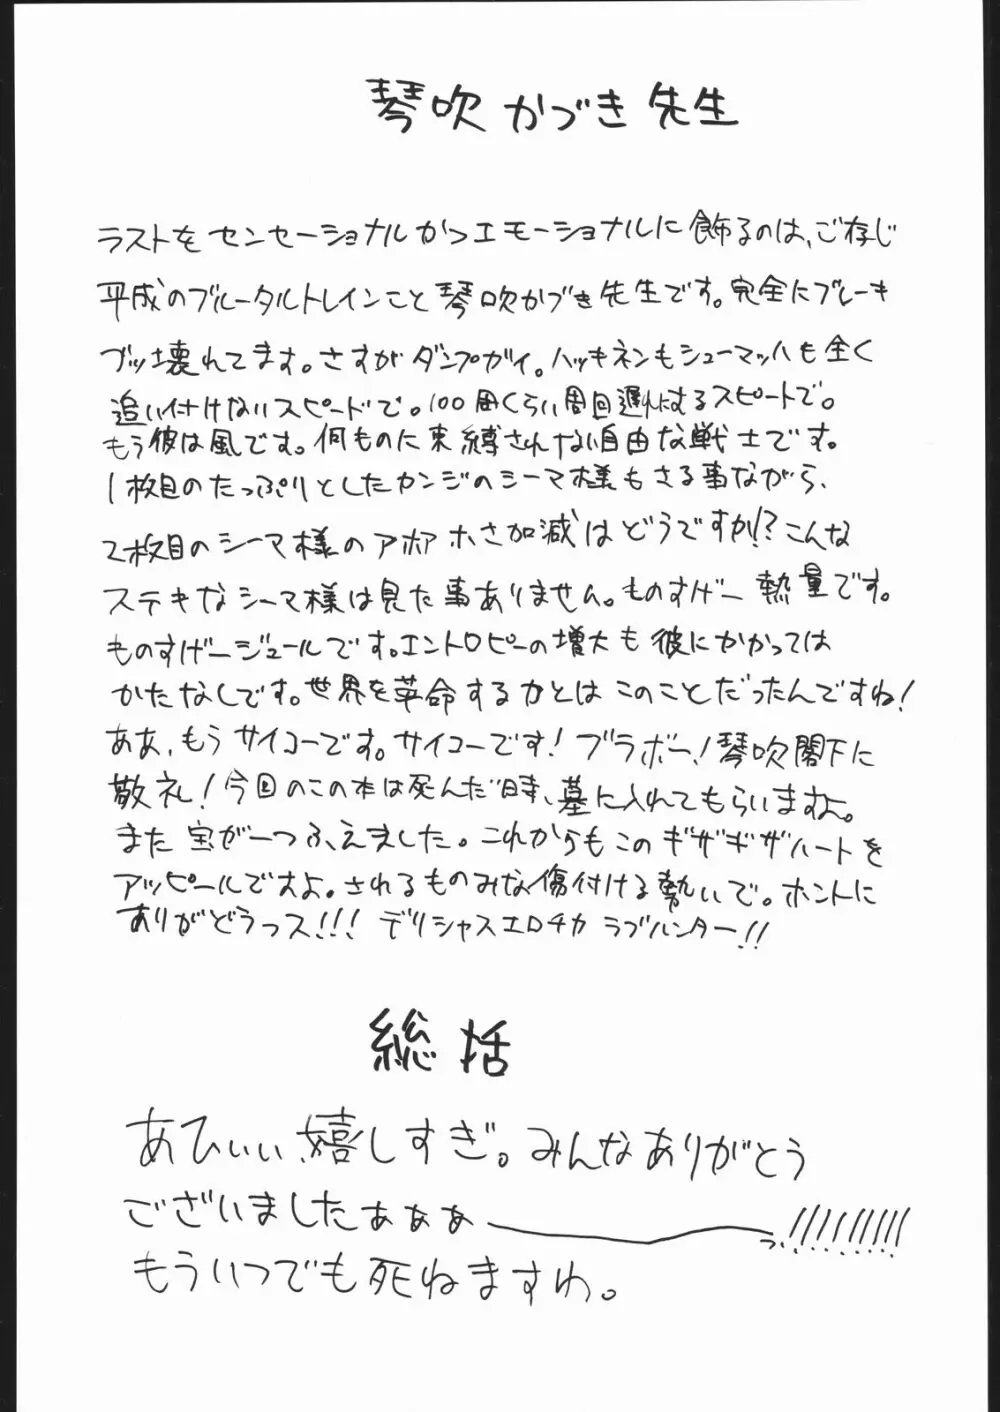 琴吹かづき先生
ラストをセンセーショナルかつエモーショナルに飾るのは、ご存じ
平成のブルータルトレインこと琴吹かづき先生です。完全にブレーキ
ブッ壊れてます。さすがダンプガイ。ハッキネンもシューマッハも全く
追い付けないスピードで。100周くらい周回遅れにするスピートで。
もう彼は風です。何ものに束縛されない自由な戦士です。
1枚目のたっぷりとしたカンジのシーマ様もさる事ながら、
2枚目のシーマ様のアホアホさ加減はどうですか!?こんな
ステキなシーマ様は見た事ありません。ものすげー熱量です。
ものすげージュールです。エントロピーの増大も彼にかかっては
かたなしです。世界を革命する力とはこのことだったんですね!
ああ、もうサイコーです。サイコーです!ブラボー!琴吹閣下に
敬礼!今回のこの本は死んだ時、墓に入れてもらいますよ。
また宝が一つふえました。これからもこのギザギザハートを
アッピールですよ。されるものみな傷付ける勢いで。ホントに
ありがどうっス!!!デリシャスエロチカラブハンター!!
総括
あひぃぃ、嬉しすぎ。みんなありがとう
ございましたぁぁぁーっ
もういつでも死ねますわ。